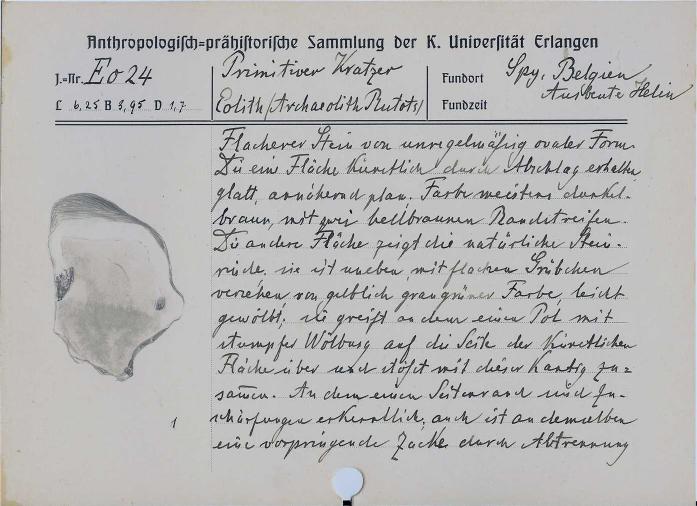 Anthropologisch=prähistorische Sammlung der K. Universität Erlangen
J.=Nr. Eo 24
L 6,25 B 5,95 D 1,7
Primitiver Kratzer
Eolith (Archaeolith Rutots)
Fundort Spy, Belgien
Ausbeute Helin
Fundzeit
Flacherer Stein von unregelmäßig ovaler Form.
Die eine Fläche künstlich durch Abschlag erhalten
glatt, annähernd plan, Farbe meistens dunkel-
braun, mit zwei hellbraunen Randstreifen.
Die andere Fläche zeigt die natürliche Stein-
rinde, sie ist uneben, mit flachen Grübchen
versehen, von gelblich graugrüner Farbe, leicht
gewölbt; sie greift an dem einen Pol mit
stumpfer Wölbung auf die Seite der künstlichen
Fläche über und stößt mit dieser kantig zu=
sam̅en. An dem einen Seitenrand sind Zu-
schärfungen erkenntlich, auch ist an demselben
eine vorspringende Zacke durch Abtrennung
1